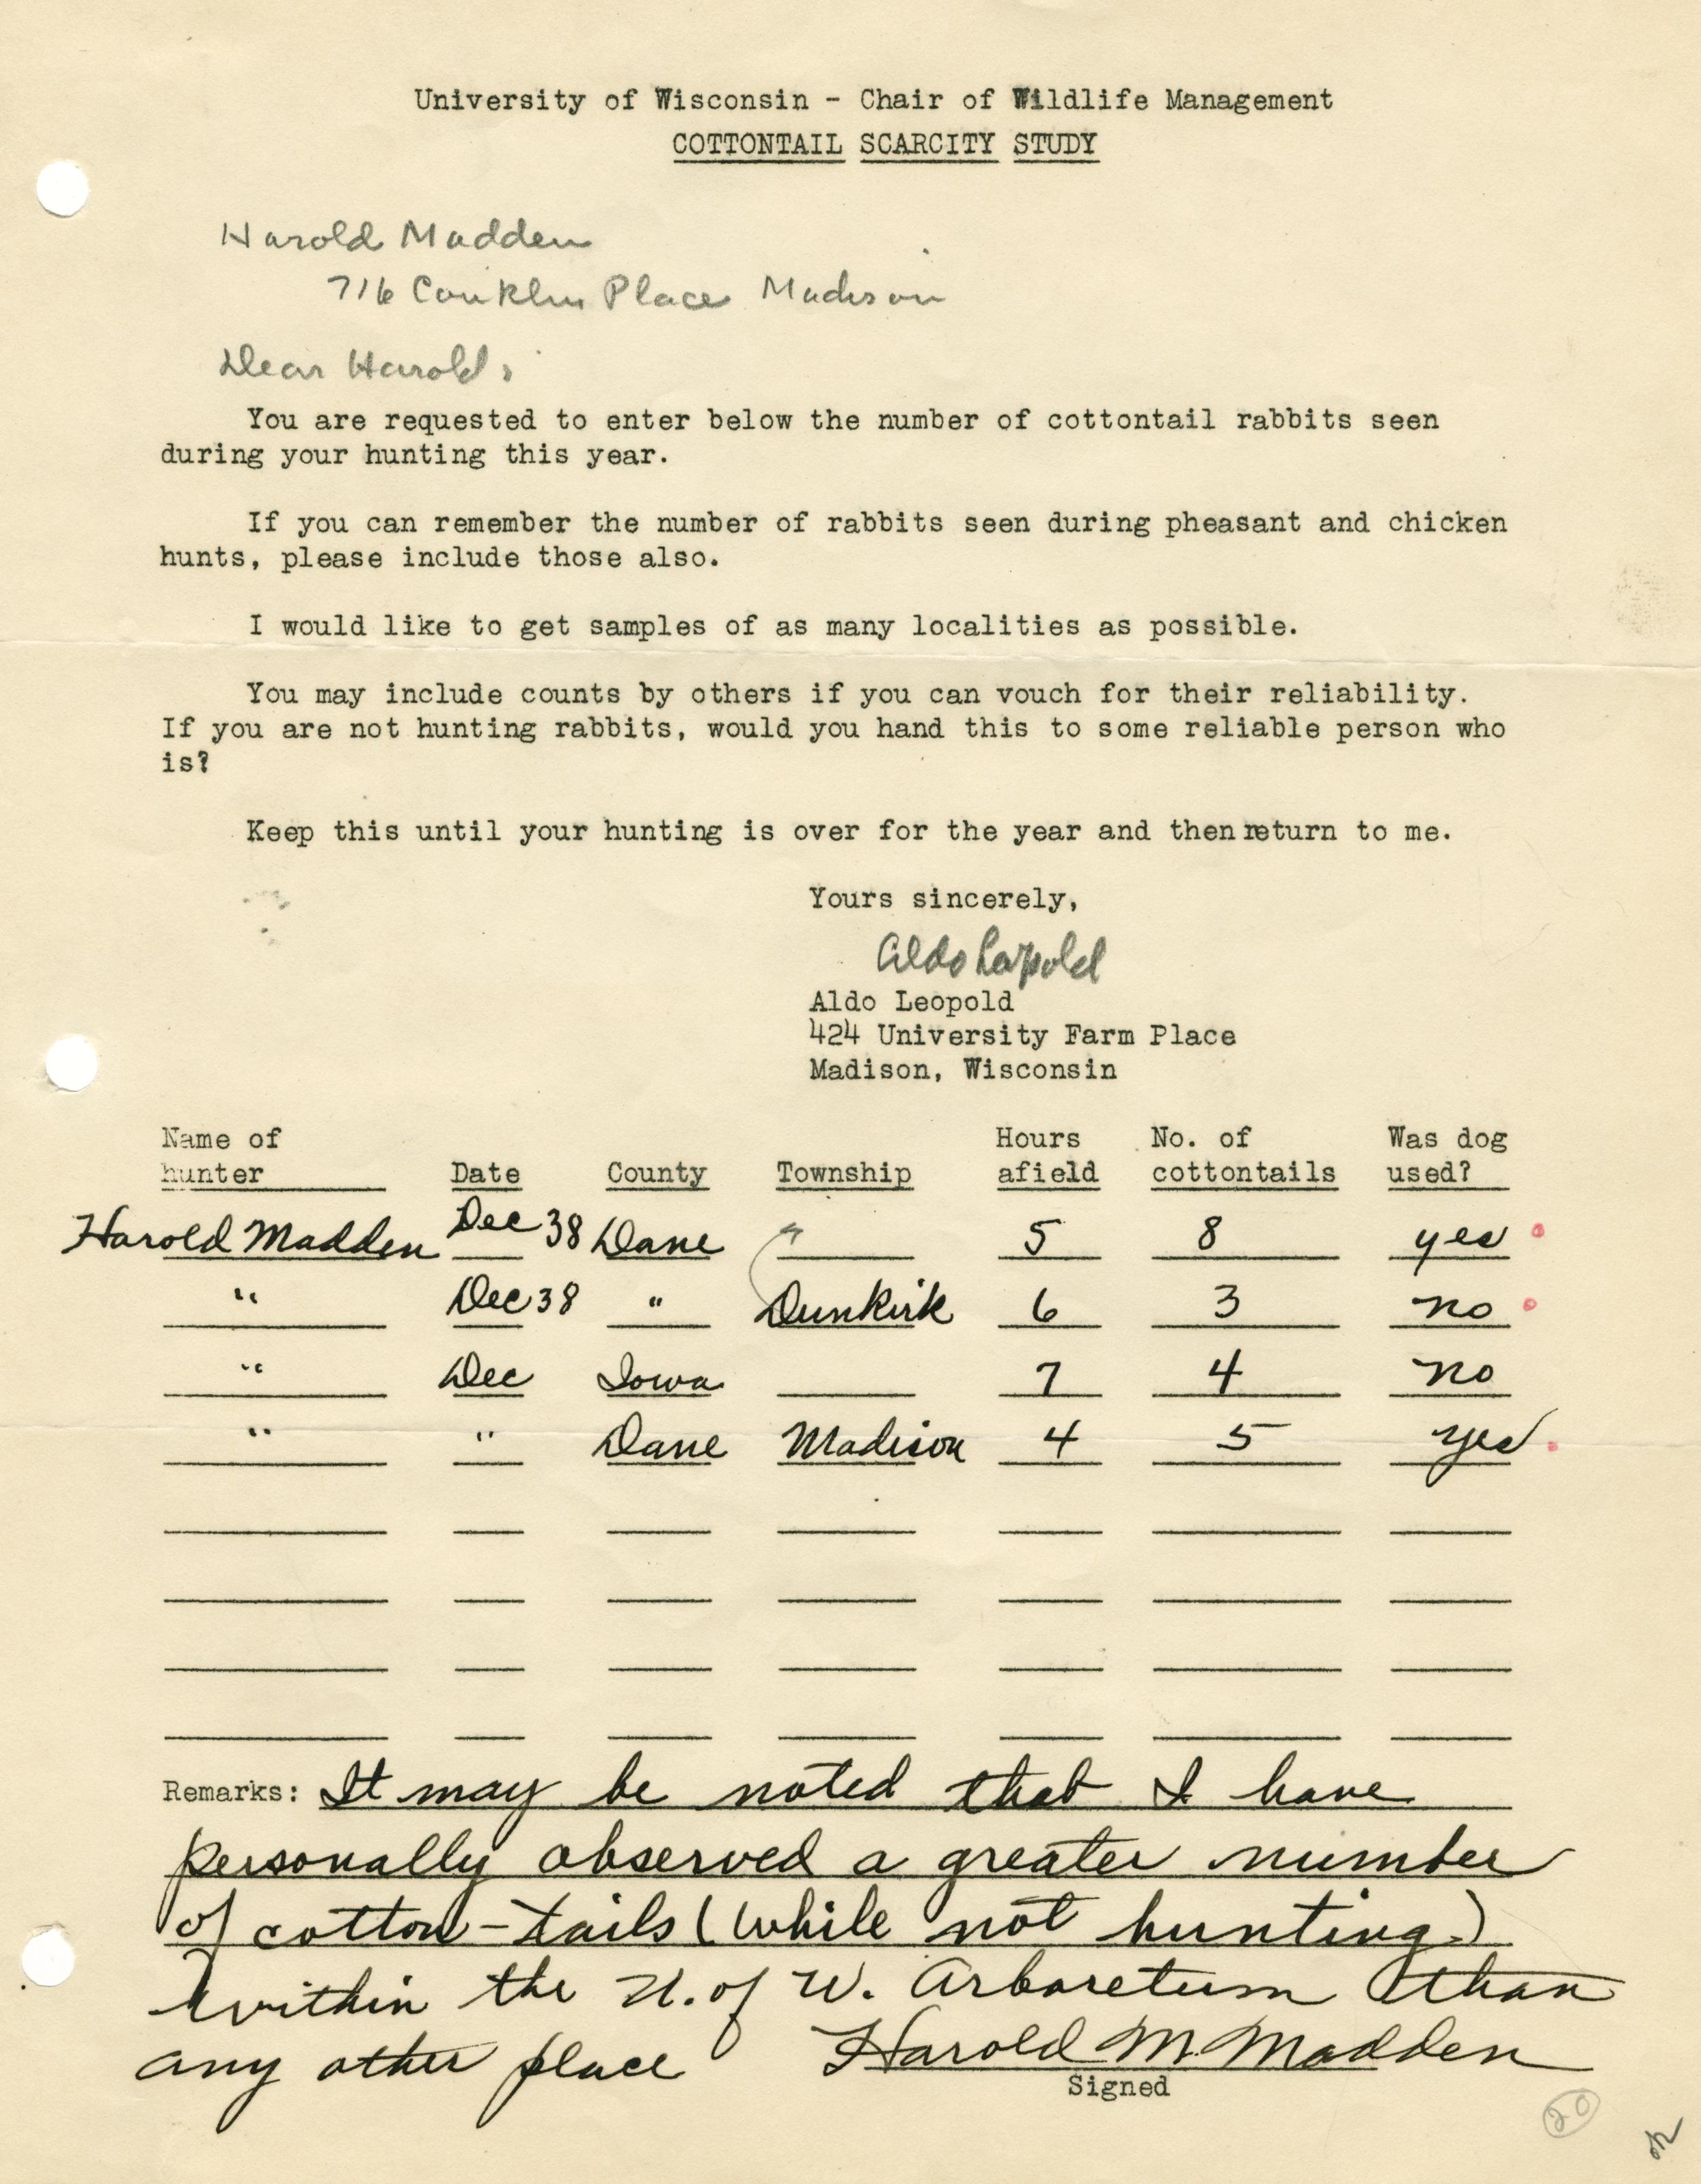 University of Wisconsin - Chair of Wildlife Management
COTTONTAIL SCARCITY STUDY
Harold Madden
716 Conklin Place Madison
Dear Harold:
You are requested to enter below the number of cottontail rabbits seen
during your hunting this year.
If you can remember the number of rabbits seen during pheasant and chicken
hunts, please include those also.
I would like to get samples of as many localities as possible.
You may include counts by others if you can vouch for their reliability.
If you are not hunting rabbits, would you hand this to some reliable person who
is?
Keep this until your hunting is over for the year and then return to me.
Yours sincerely,
Aldo Leopold
Aldo Leopold
424 University Farm Place
Madison, Wisconsin
Name of Hours No. of Was dog
hunter Date County Township afield cottontails used?
Harold Madden Dec 38 Dane " 5 8 yes
" Dec 38 " Dunkirk 6 3 no
" Dec Iowa 7 4 no
" " Dane Madison 4 5 yes
Remarks: It may be noted that I have
personally observed a greater number
of cotton-tails (while not hunting)
within the U. of W. Arboretum than
any other place Harold M. Madden
Signed
20